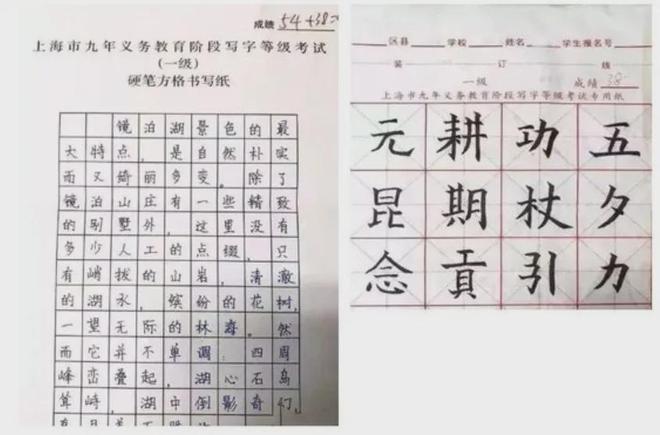 成绩 54+38
上海市九年义务教育阶段写字等级考试
(一级)
硬笔方格书写纸
镜泊湖景色的最
大特点,是自然朴实
而又绮丽多变。除了
镜泊山庄有一些精致
的别墅外,这里没有
多少人工的点缀,只
有峭拔的山岩,清澈
的湖水,缤纷的花树,
一望无际的林海。然
而它并不单调:四周
峰峦叠起,湖心石岛
耸峙,湖中倒影奇幻,
区县 学校 姓名 学生报名号
装 订 线
一级 成绩 38
上海市九年义务教育阶段写字等级考试专用纸
元耕功五
昆期杖夕
念贡引力